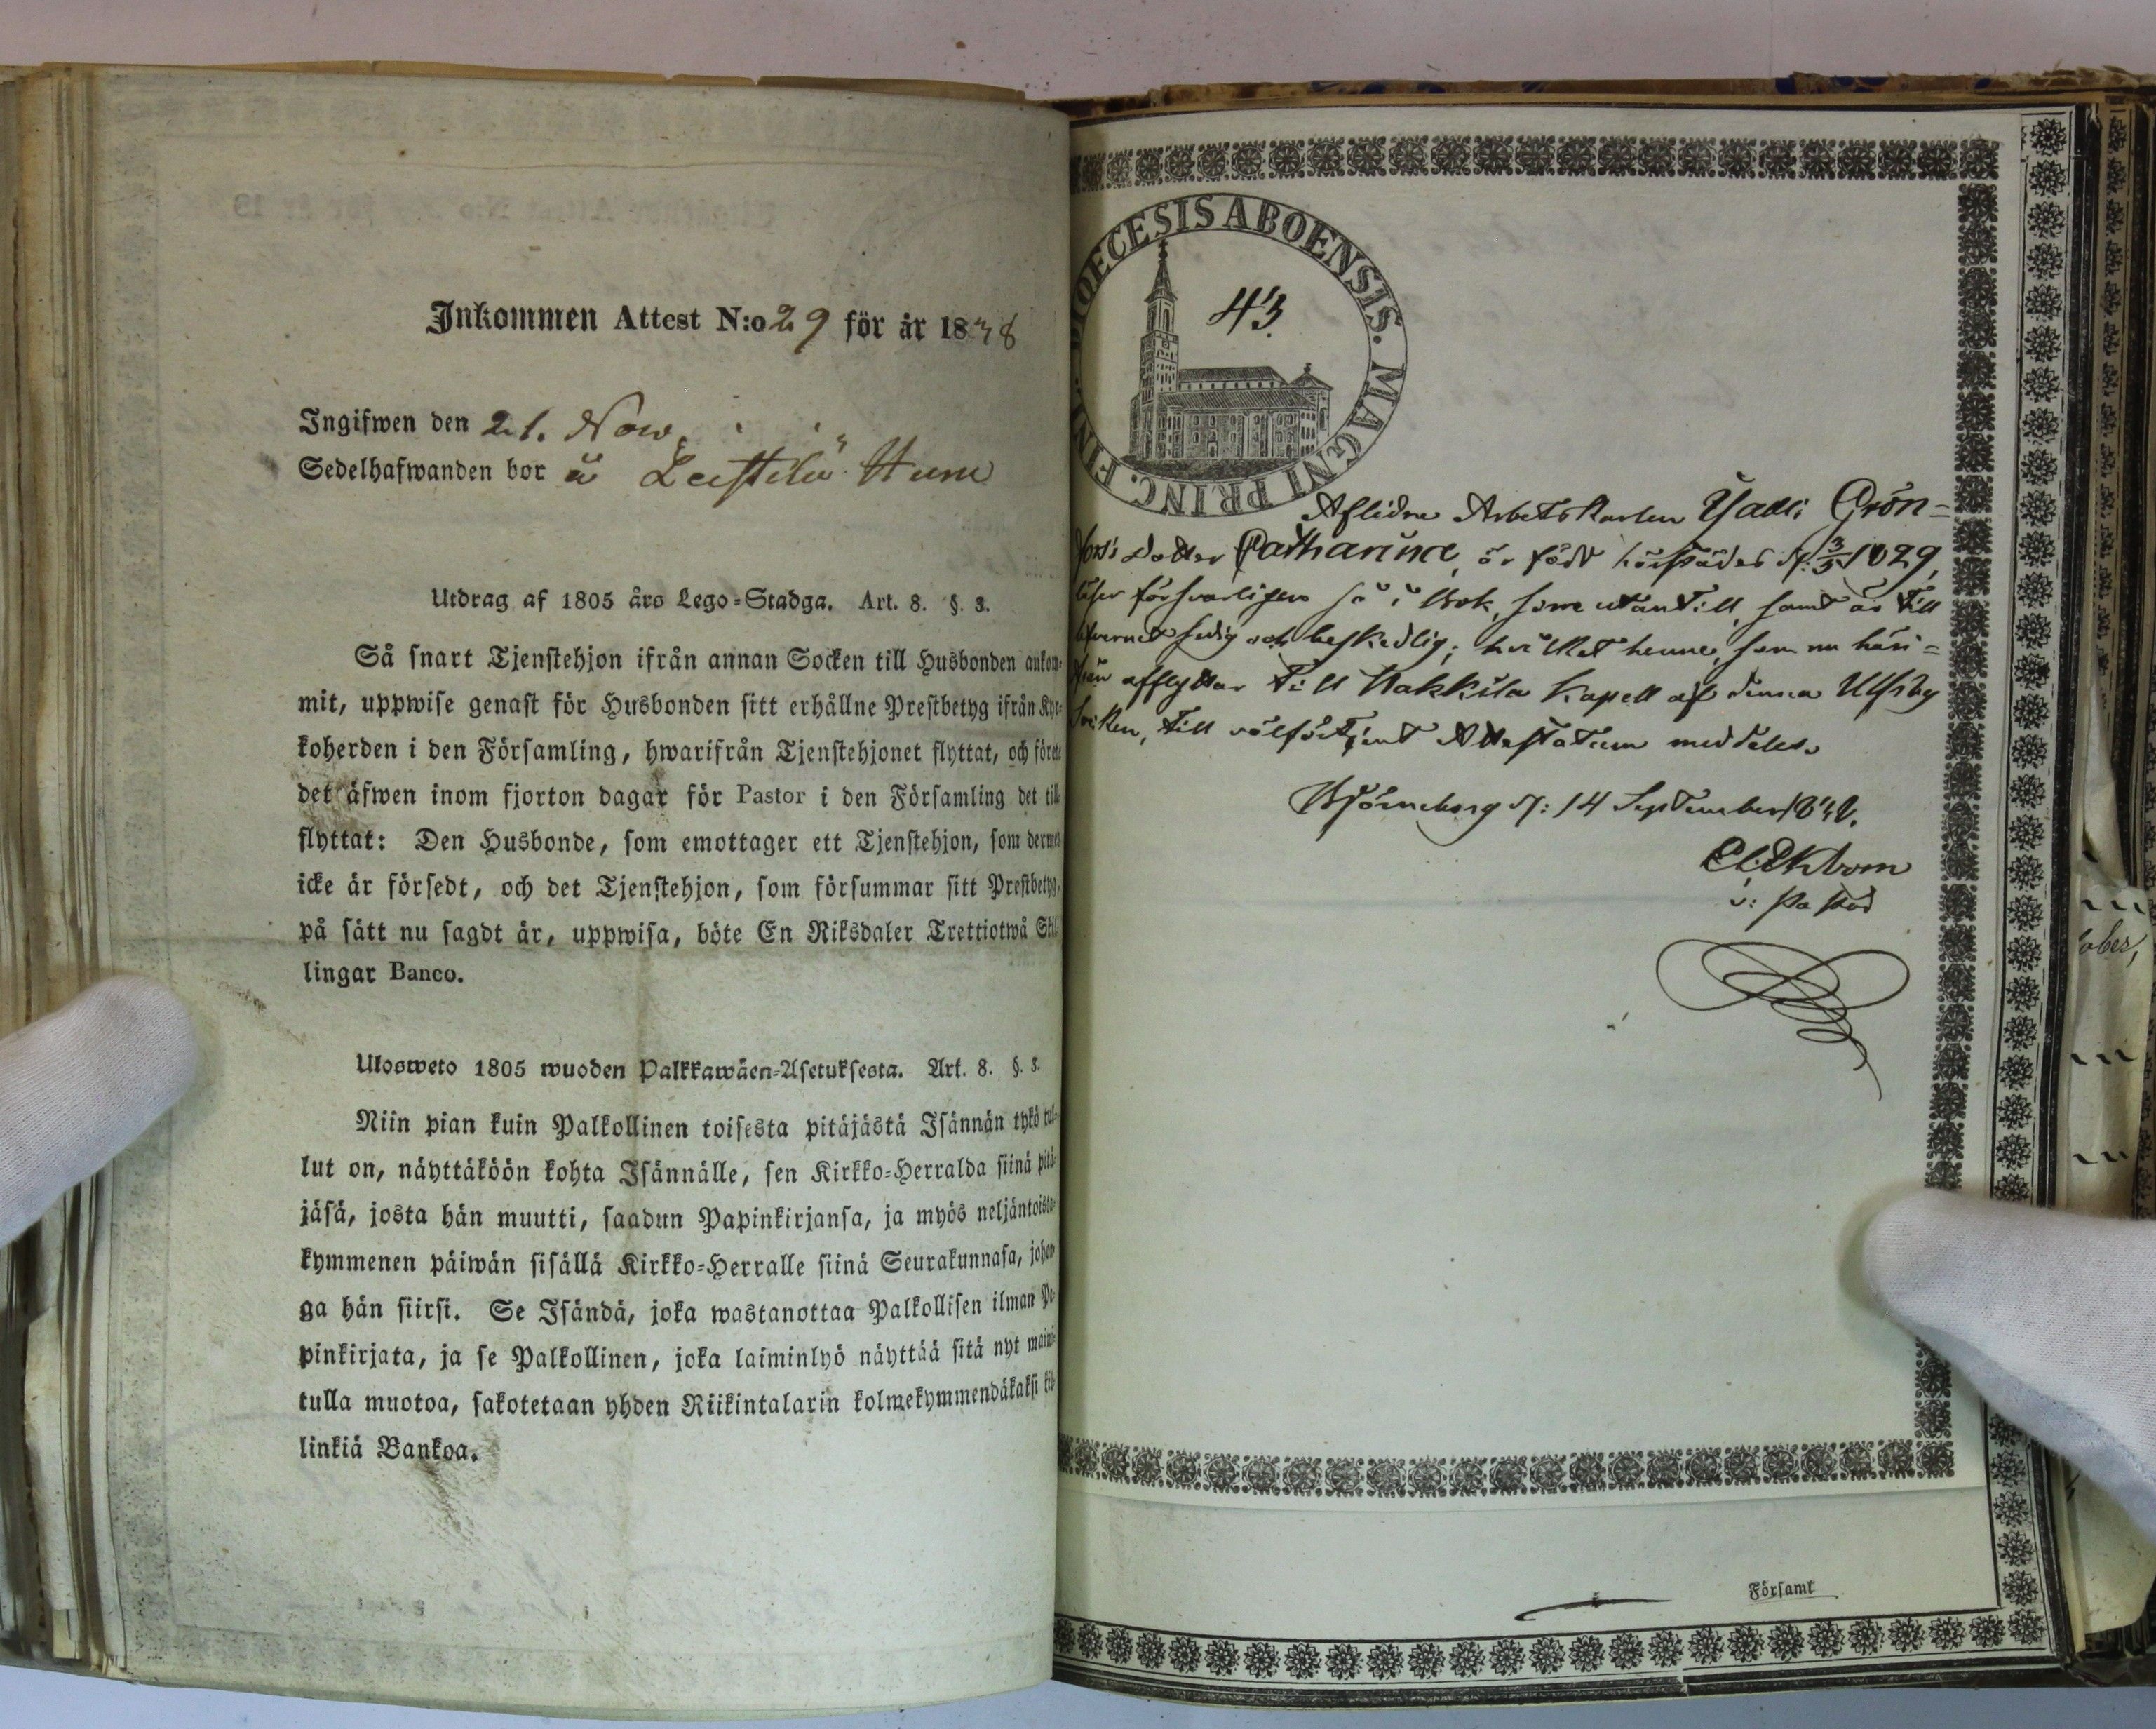 Inkommen Attest N:o 29 för år 1848
Ingifwen den 21. Nov.
Sedelhafwanden bor å Leistilä
Utdrag af 1805 års Lego-Stadga. Art. 8. §. 3.
Så snart Tjenstehjon ifrån annan Socken till Husbonden ankom-
mit, uppwise genast för Husbonden sitt erhållne Prestbetyg ifrån Kyr-
koherden i den Församling, hwarifrån Tjenstehjonet flyttat, och förete
det äfwen inom fjorton dagar för Pastor i den Församling det till-
flyttat: Den Husbonde, som emottager ett Tjenstehjon, som dermed
icke är försedt, och det Tjenstehjon, som försummar sitt Prestbetyg,
på sätt nu sagdt är, uppwisa, böte En Riksdaler Trettiotwå Skil-
lingar Banco.
Ulosweto 1805 wuoden Palkkawäen-Asetuksesta. Art. 8. §. 3.
Niin pian kuin Palkollinen toisesta pitäjästä Isännän tykö tul-
lut on, näyttäköön kohta Isännälle, sen Kirkko-Herralda siinä pitä-
jäsä, josta hän muutti, saadun Papinkirjansa, ja myös neljäntoista-
kymmenen päiwän sisällä Kirkko-Herralle siinä Seurakunnasa, johon-
ga hän siirsi. Se Isändä, joka wastanottaa Palkollisen ilman Pa-
pinkirjata, ja se Palkollinen, joka laiminlyö näyttää sitä nyt maini-
tulla muotoa, sakotetaan yhden Riikintalarin kolmekymmendäkaksi kil-
linkiä Bankoa.
DIOECESIS ABOENSIS. MAGNI PRINC. FINL.
43.
Aflidne Arbetskarlen Grön-
fors's dotter Catharina, är född härstädes d: 3/5 1829,
läser försvarligen så i bok, som utantill, samt är till
lefvernet sedig och beskedlig; hvilket henne, som nu häri-
från afflyttar till Kakkila Kapell af denna Ulfsby
Socken, till välförtjent Attestatum meddelas.
Björneborg d: 14 September 1848.
Ekbom
v: Pastor
Församl